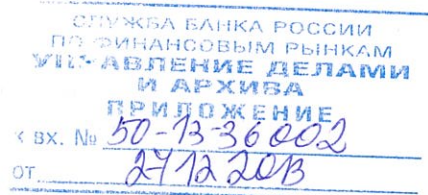 СЛУЖБА БАНКА РОССИИ
ПО ФИНАНСОВЫМ РЫНКАМ
УПРАВЛЕНИЕ ДЕЛАМИ
И АРХИВА
ПРИЛОЖЕНИЕ
К ВХ. № 50-13-36002
ОТ 27 12 2013